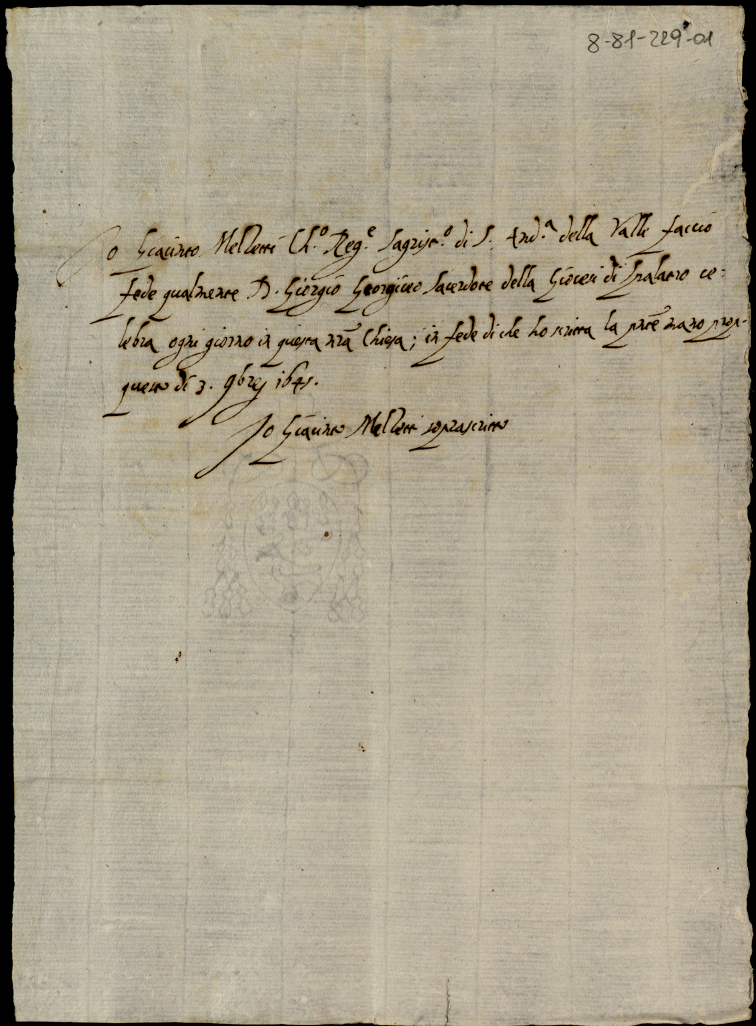 8-81-229-01
Io Giacinto Melletti Ch.º Reg.e Sagrist.º di S. And.a della Valle faccio
fede qualmente D. Giorgio Georgiceo Sacerdote della Giocesi di Spalatro ce-
lebra ogni giorno in questa nrã Chiesa; in fede di che ho scritta la pntẽ mano propa
questo dì 3. 9bre 1641.
Io Giacinto Melletti soprascritto